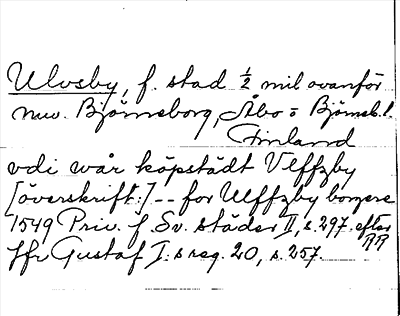 Ulvsby, f. stad ½ mil ovanför
nuv. Björneborg, Åbo o Björneb. l.
Finland
vdi wår köpstädt Vlffzby
[överskrift:] -- for Ulffzby borgere
1549 Priv. f. Sv. städer II, s. 297. efter RR
Jfr Gustaf I:s reg. 20, s. 257.